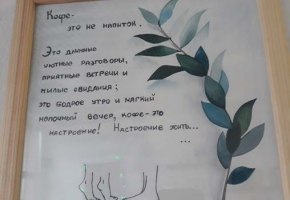 Кофе-
это не напиток.
Это длинные
уютные разговоры,
приятные встречи и
милые свидания;
это бодрое утро и мягкий
молочный вечер, кофе-это
настроение! Настроение жить...
...